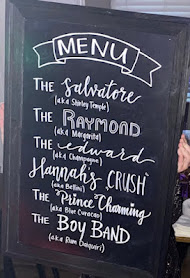 MENU
THE Salvatore
(a.k.a Shirley Temple)
THE RAYMOND
(a.k.a Margarita)
THE edward
(a.k.a Champagne)
Hannah's CRUSH
(a.k.a Bellini)
THE "Prince" Charming
(a.k.a Blue Curacao)
THE BOY BAND
(a.k.a Rum Daiquiri)